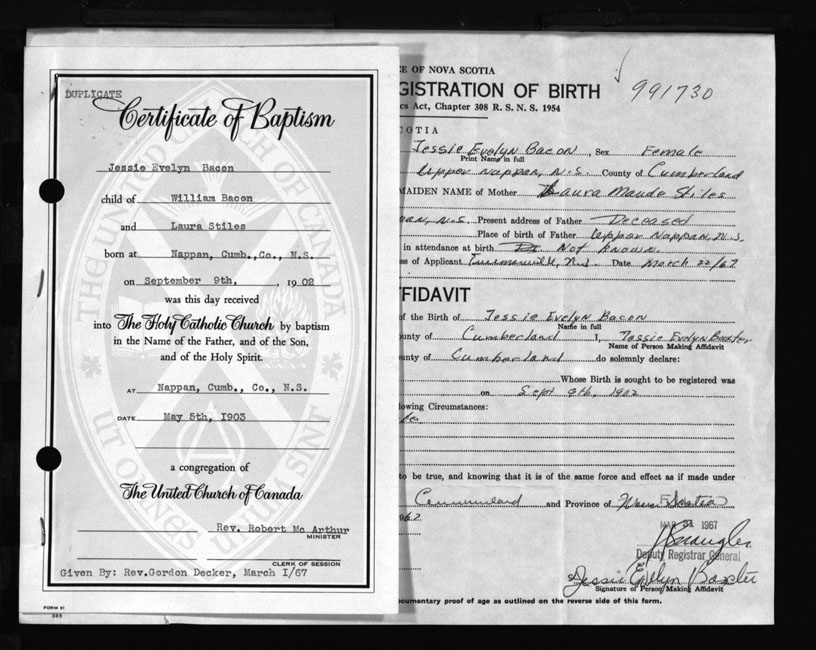 DUPLICATE
Certificate of Baptism
Jessie Evelyn Bacon
child of William Bacon
and Laura Stiles
born at Nappan, Cumb.,Co., N.S.
on September 9th, , 1902
was this day received
into The Holy Catholic Church by baptism
in the Name of the Father, and of the Son,
and of the Holy Spirit.
AT Nappan, Cumb., Co., N.S.
DATE May 5th, I903
a congregation of
The United Church of Canada
Rev. Robert Mc Arthur
MINISTER
CLERK OF SESSION
Given By: Rev.Gordon Decker, March I/67
FORM 61
THE UNITED CHURCH OF CANADA
UT OMNES UNUM SINT
CE OF NOVA SCOTIA
GISTRATION OF BIRTH
991730
cs Act, Chapter 308 R. S. N. S. 1954
COTIA
Jessie Evelyn Bacon, Sex Female
Print Name in full
Upper Nappan, N.S. County of Cumberland
MAIDEN NAME of Mother Laura Maude Stiles
an, N.S. Present address of Father Deceased
Place of birth of Father Upper Nappan, N.S.
in attendance at birth Not Known
ss of Applicant Date March 22/67
FIDAVIT
of the Birth of Jessie Evelyn Bacon
Name in full
unty of Cumberland I, Jessie Evelyn Baxter
Name of Person Making Affidavit
unty of Cumberland do solemnly declare:
Whose Birth is sought to be registered was
on Sept 9th, 1902
lowing Circumstances:
to be true, and knowing that it is of the same force and effect as if made under
Cumberland and Province of Nova Scotia
967
MAR 31 1967
Deputy Registrar General
Jessie Evelyn Baxter
Signature of Person Making Affidavit
cumentary proof of age as outlined on the reverse side of this form.